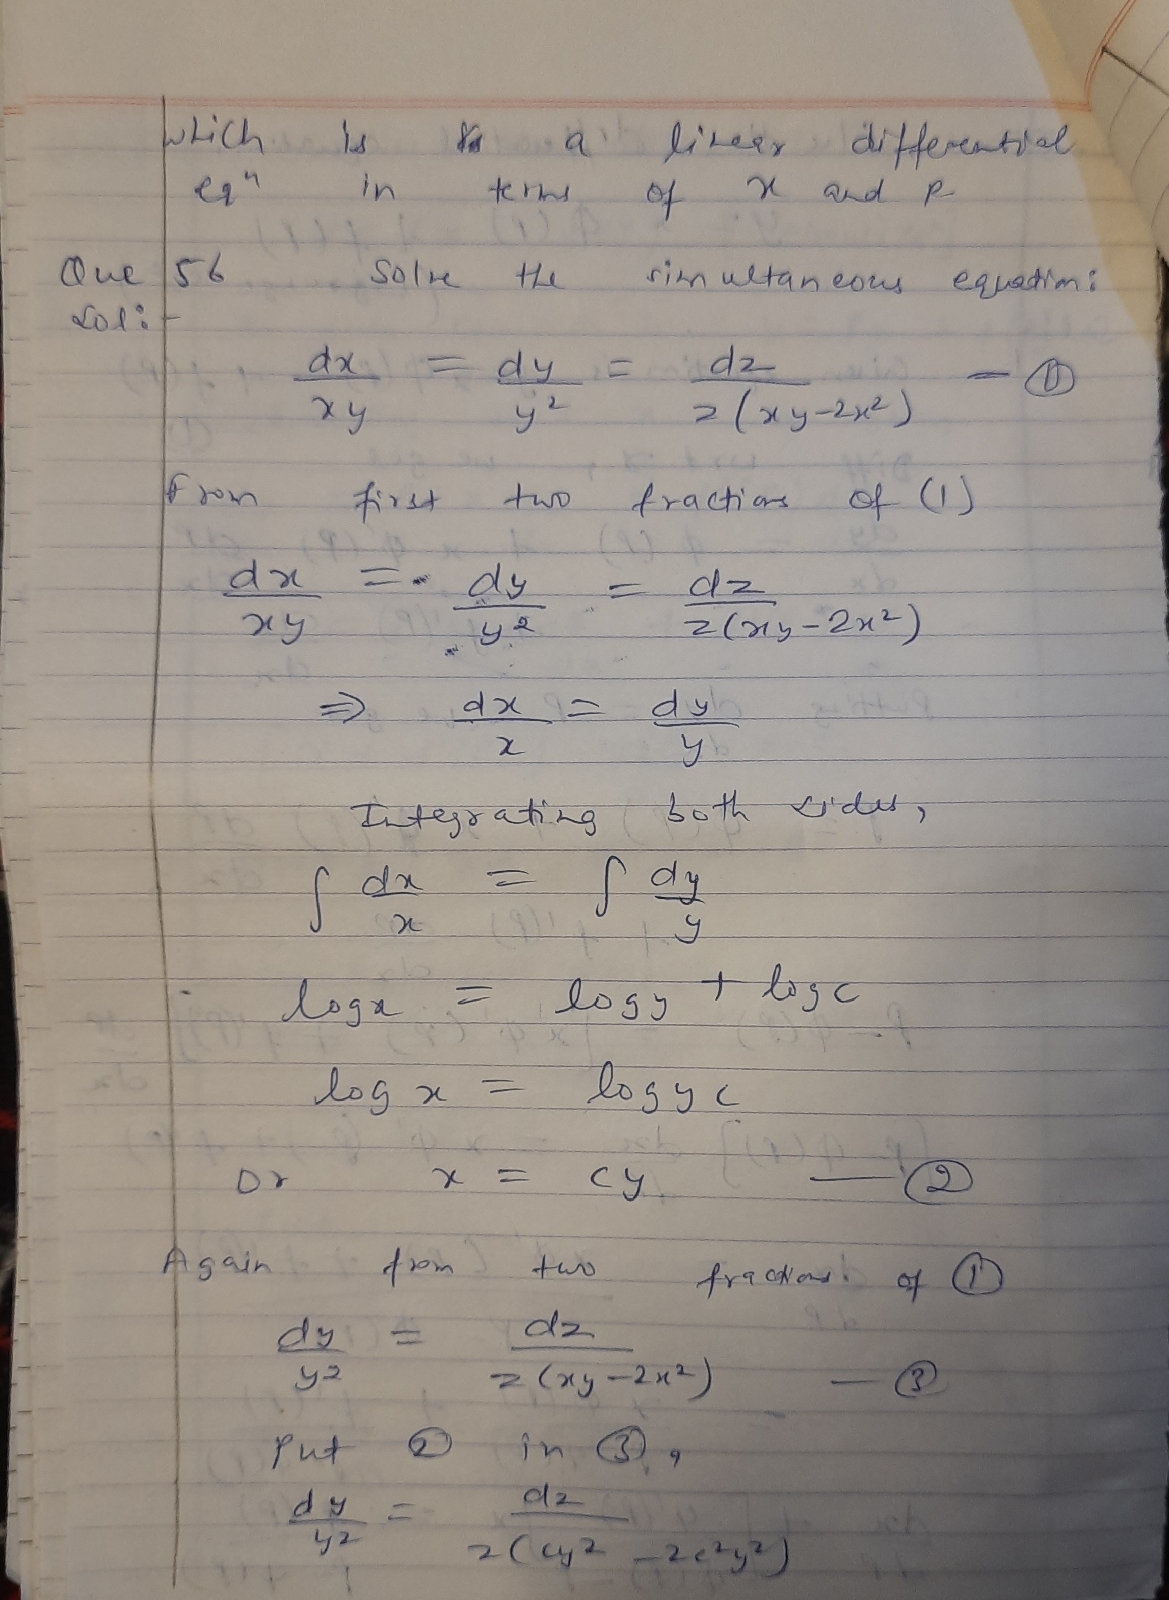 which is a linear differential
eqn in terms of x and p
Que 56 Solve the simultaneous equation:
Sol:-
dx/xy = dy/y² = dz/z(xy-2x²) — ①
From first two fractions of (1)
dx/xy = dy/y² = dz/z(xy-2x²)
⇒ dx/x = dy/y
Integrating both sides,
∫ dx/x = ∫ dy/y
log x = log y + log c
log x = log y c
Or x = cy — ②
Again from two fractions of ①
dy/y² = dz/z(xy-2x²) — ③
Put ② in ③,
dy/y² = dz/z(cy² - 2c²y²)